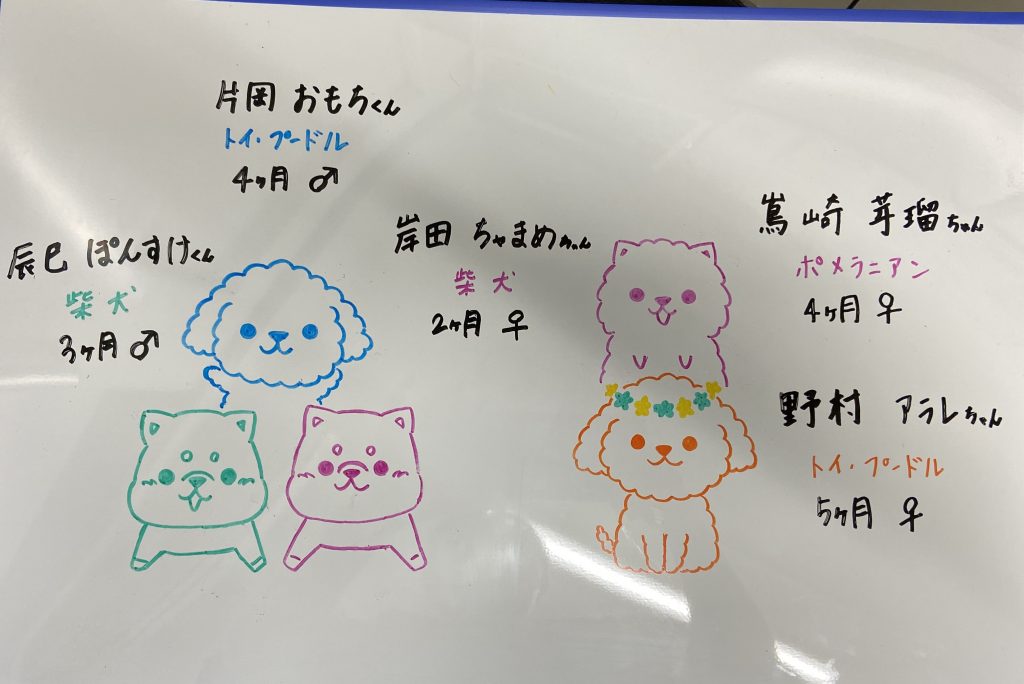 片岡 おもちくん
トイ・プードル
4ヶ月 ♂
辰巳 ぽんすけくん
柴犬
3ヶ月 ♂
岸田 ちゃまめちゃん
柴犬
2ヶ月 ♀
嶌崎 芽瑠ちゃん
ポメラニアン
4ヶ月 ♀
野村 アラレちゃん
トイ・プードル
5ヶ月 ♀